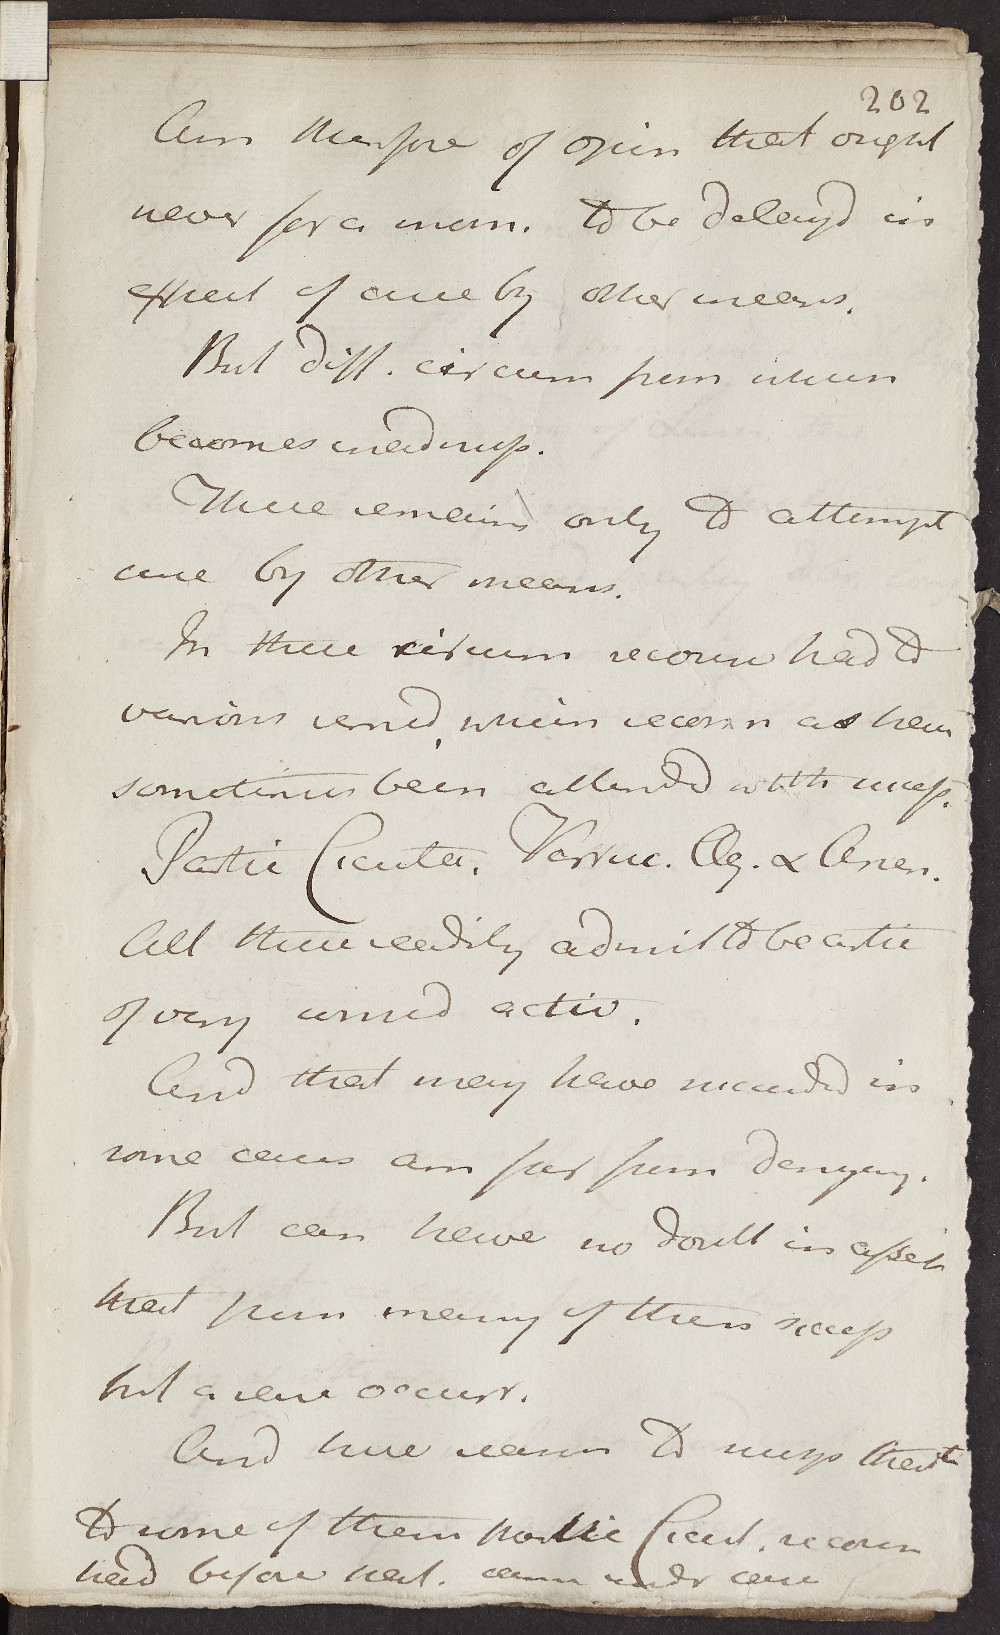 202
Am therefore of opin that ought
never for a mom. to be delayd in
expect of cure by other means.
But diff. circum from when
becomes inadmiss.
There remains only to attempt
cure by other means.
In these circum recourse had to
various remed, which recom as have
sometimes been attended with success.
Partic Cicuta. Verruc. Aq. & Arsen.
All these readily admit to be artic
of very consid activ.
And that may have succeeded in
some cases am far from denying.
But can have no doubt in assert
that from many of them success
but a rare occurr.
And have reason to susp that
to some of them partic Cicut. recour
had before nat. under care